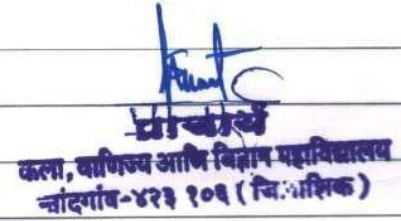 प्राचार्य
कला, वाणिज्य आणि विज्ञान महाविद्यालय
नांदगांव-४२३ १०६ (जि. नाशिक)